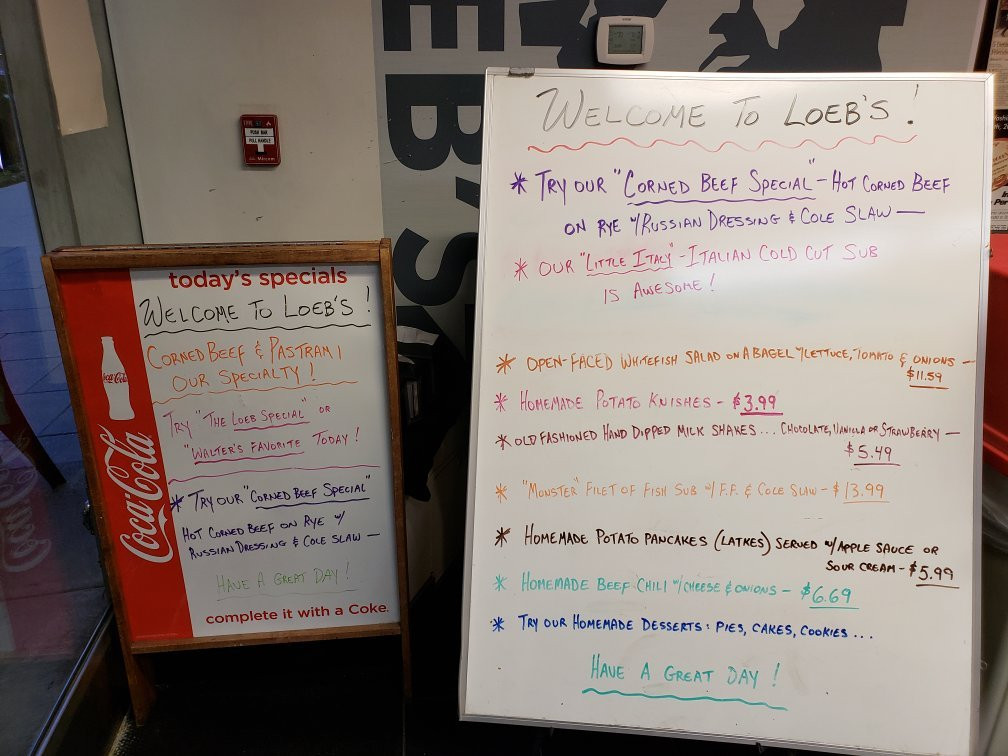 today's specials
WELCOME TO LOEB'S!
CORNED BEEF & PASTRAMI
OUR SPECIALTY!
TRY "THE LOEB SPECIAL" OR
"WALTER'S FAVORITE TODAY!
* TRY OUR "CORNED BEEF SPECIAL"
HOT CORNED BEEF ON RYE W/
RUSSIAN DRESSING & COLE SLAW —
HAVE A GREAT DAY!
complete it with a Coke.
Coca-Cola
Coca-Cola
PUSH BAR
PULL HANDLE
EBS
WELCOME TO LOEB'S!
* TRY OUR "CORNED BEEF SPECIAL" - HOT CORNED BEEF
ON RYE W/RUSSIAN DRESSING & COLE SLAW —
* OUR "LITTLE ITALY" - ITALIAN COLD CUT SUB
IS AWESOME!
* OPEN-FACED WHITEFISH SALAD ON A BAGEL W/LETTUCE, TOMATO & ONIONS —
$11.59
* HOMEMADE POTATO KNISHES - $3.99
* OLD FASHIONED HAND DIPPED MILK SHAKES... CHOCOLATE, VANILLA OR STRAWBERRY —
$5.49
* "MONSTER" FILET OF FISH SUB W/ F.F. & COLE SLAW - $13.99
* HOMEMADE POTATO PANCAKES (LATKES) SERVED W/APPLE SAUCE OR
SOUR CREAM - $5.99
* HOMEMADE BEEF CHILI W/CHEESE & ONIONS - $6.69
* TRY OUR HOMEMADE DESSERTS: PIES, CAKES, COOKIES...
HAVE A GREAT DAY!